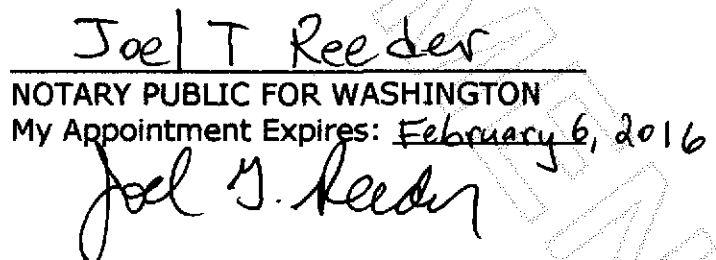 Joel T Reeder
NOTARY PUBLIC FOR WASHINGTON
My Appointment Expires: February 6, 2016
Joel T. Reeder